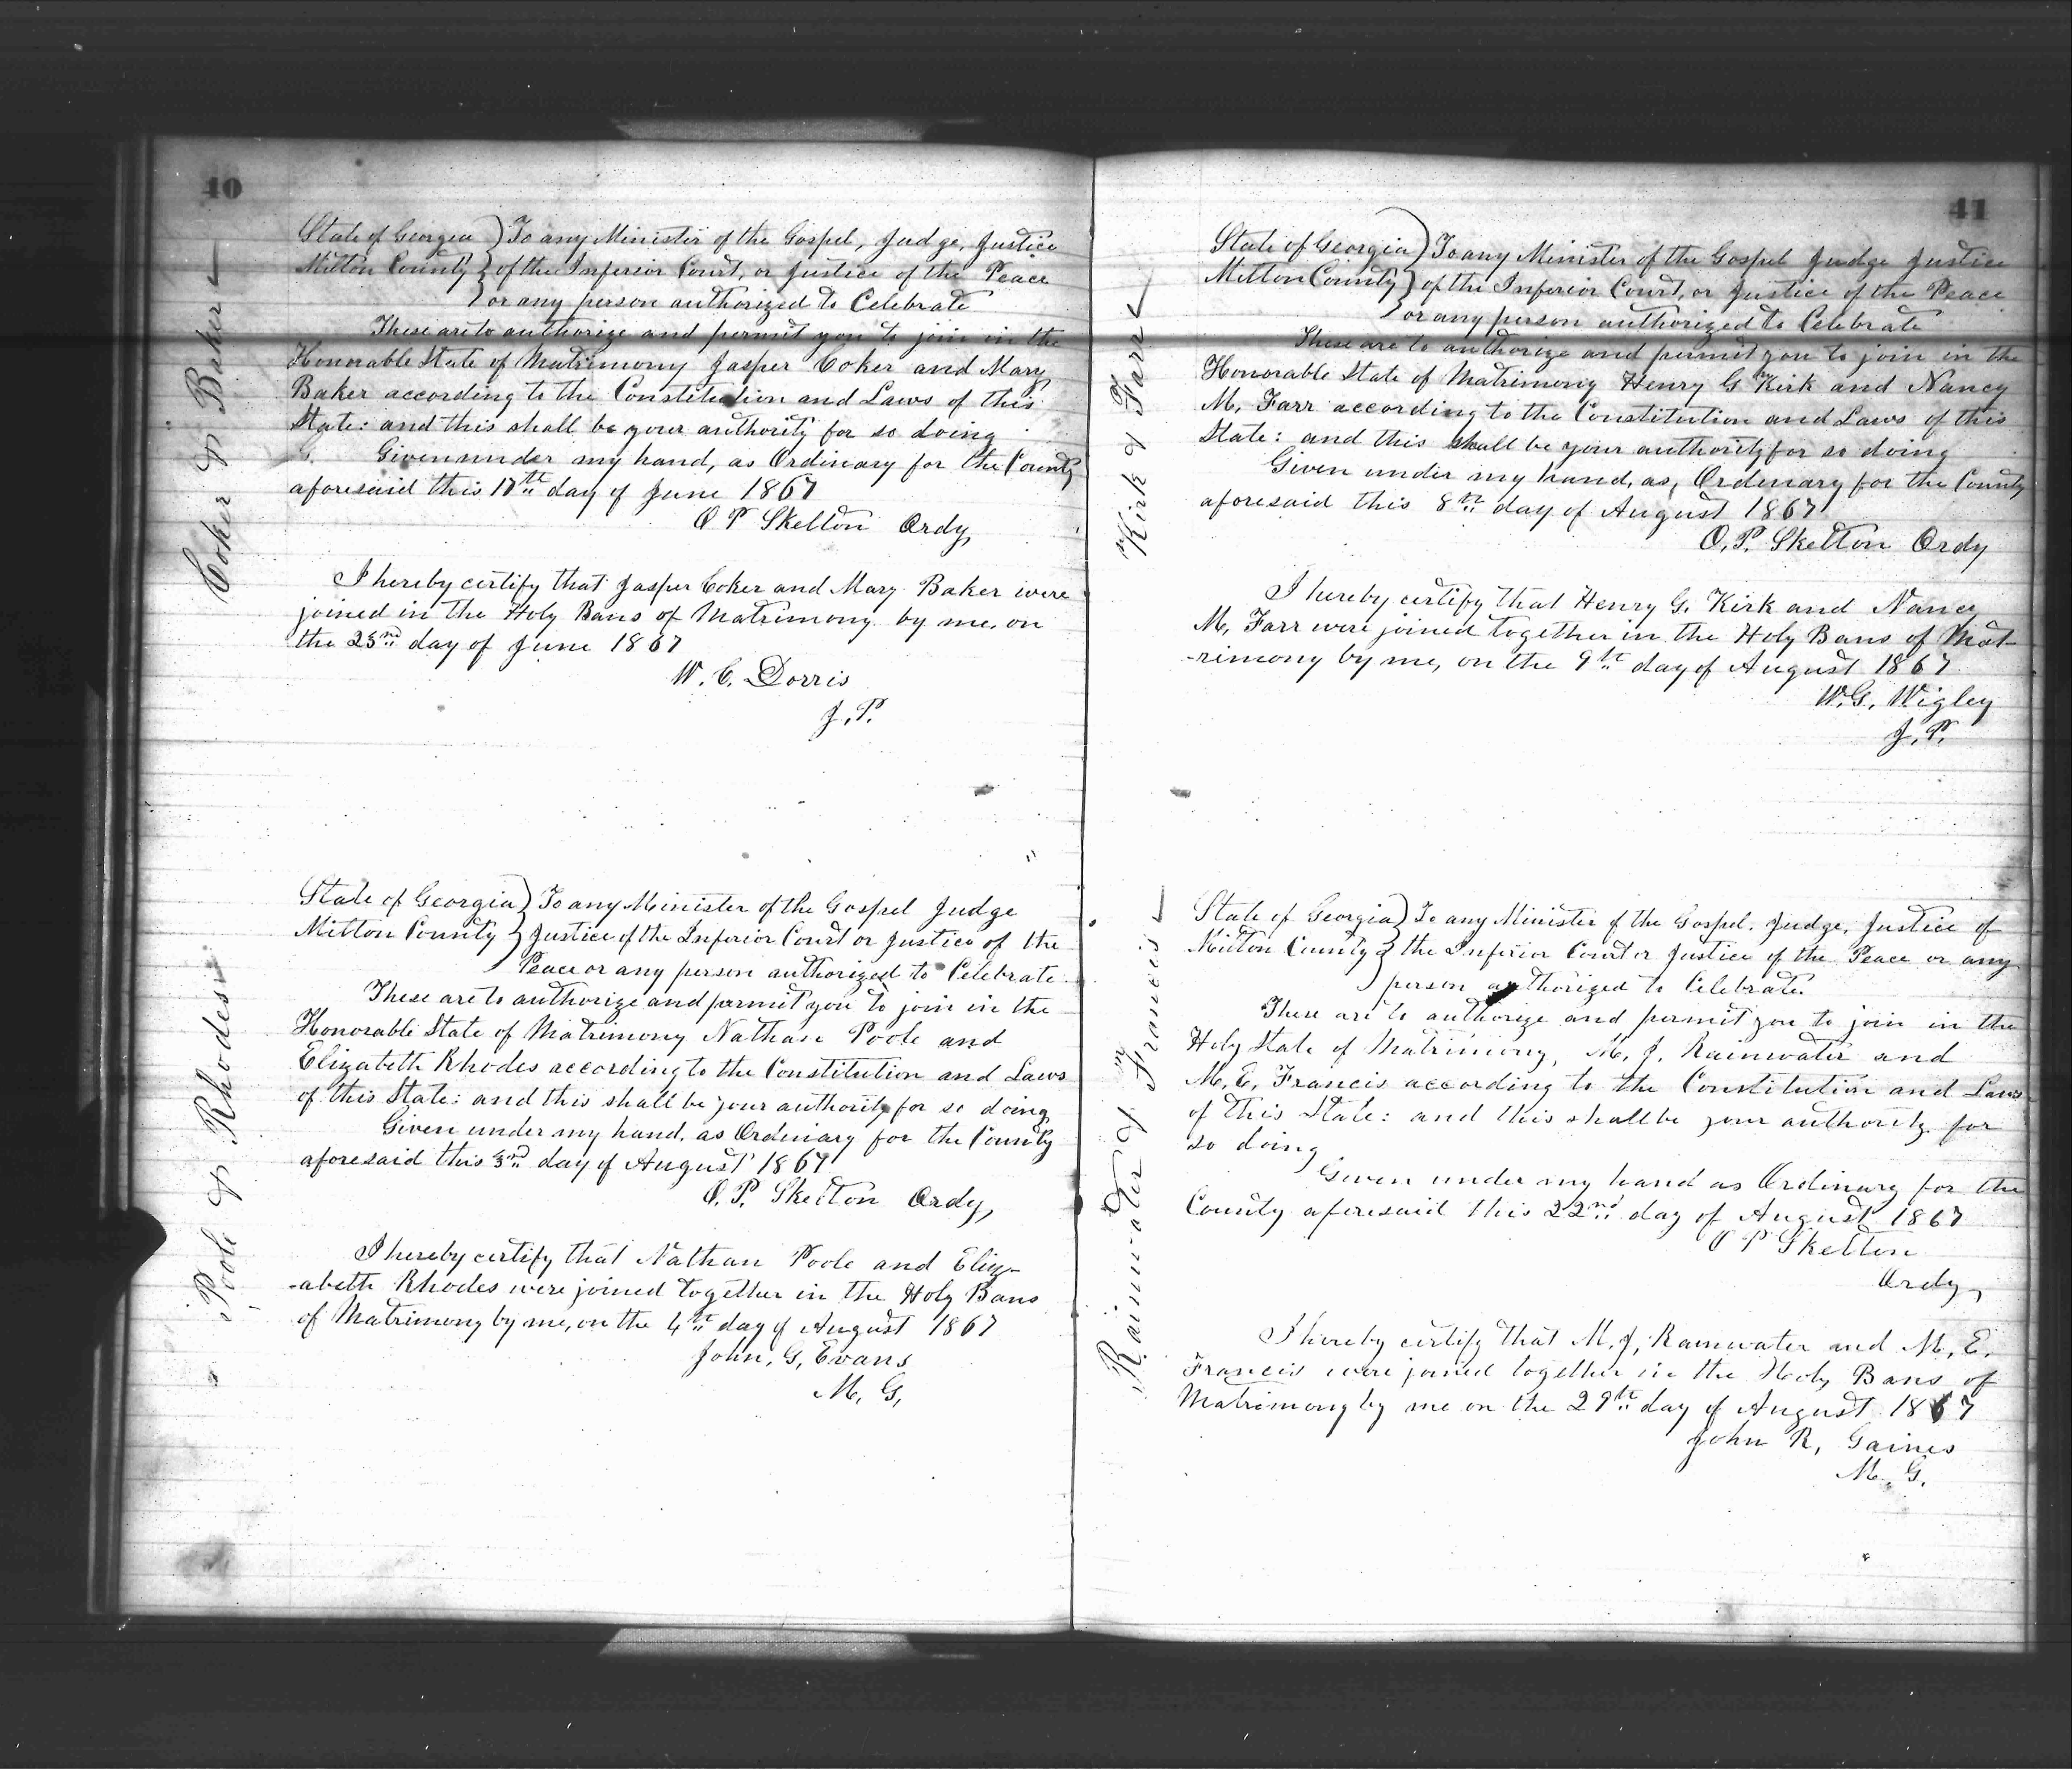 40
Coker & Baker
State of Georgia ) To any Minister of the Gospel, Judge, Justice
Milton County } of the Inferior Court, or Justice of the Peace
or any person authorized to Celebrate
These are to authorize and permit you to join in the
Honorable State of Matrimony Jasper Coker and Mary
Baker according to the Constitution and Laws of this
State: and this shall be your authority for so doing
Given under my hand, as Ordinary for the County
aforesaid this 17th day of June 1867
O P Skelton Ordy,
I hereby certify that Jasper Coker and Mary Baker were
joined in the Holy Bans of Matrimony by me, on
the 23nd day of June 1867
W. C. Dorris
J. P.
Poole & Rhodes
State of Georgia ) To any Minister of the Gospel Judge
Milton County } Justice of the Inferior Court or Justice of the
Peace or any person authorized to Celebrate
These are to authorize and permit you to join in the
Honorable State of Matrimony Nathan Poole and
Elizabeth Rhodes according to the Constitution and Laws
of this State: and this shall be your authority for so doing
Given under my hand, as Ordinary for the County
aforesaid this 3rd day of August 1867
O. P. Skelton Ordy,
I hereby certify that Nathan Poole and Eliz-
-abeth Rhodes were joined together in the Holy Bans
of Matrimony by me, on the 4th day of August 1867
John, G, Evans
M. G,
41
Kirk & Farr
State of Georgia ) To any Minister of the Gospel Judge Justice
Milton County } of the Inferior Court, or Justice of the Peace
or any person authorized to Celebrate
These are to authorize and permit you to join in the
Honorable State of Matrimony Henry G Kirk and Nancy
M. Farr according to the Constitution and Laws of this
State: and this shall be your authority for so doing
Given under my hand, as, Ordinary for the County
aforesaid this 8th day of August 1867
O. P. Skelton Ordy
I hereby certify that Henry G. Kirk and Nancy
M, Farr were joined together in the Holy Bans of Mat-
-rimony by me, on the 9th day of August 1867
W. G. Wigley
J. P.
Rainwater & Francis
State of Georgia ) To any Minister of the Gospel, Judge, Justice of
Milton County } the Inferior Court or Justice of the Peace or any
person authorized to Celebrate.
These are to authorize and permit you to join in the
Holy State of Matrimony, M. J. Rainwater and
M. E. Francis according to the Constitution and Laws
of this State: and this shall be your authority for
so doing
Given under my hand as Ordinary for the
County aforesaid this 22nd day of August 1867
O P Skelton
Ordy,
I hereby certify that M. J, Rainwater and M. E.
Francis were joined together in the Holy Bans of
Matrimony by me on the 29th day of August 1867
John R, Gaines
M. G.